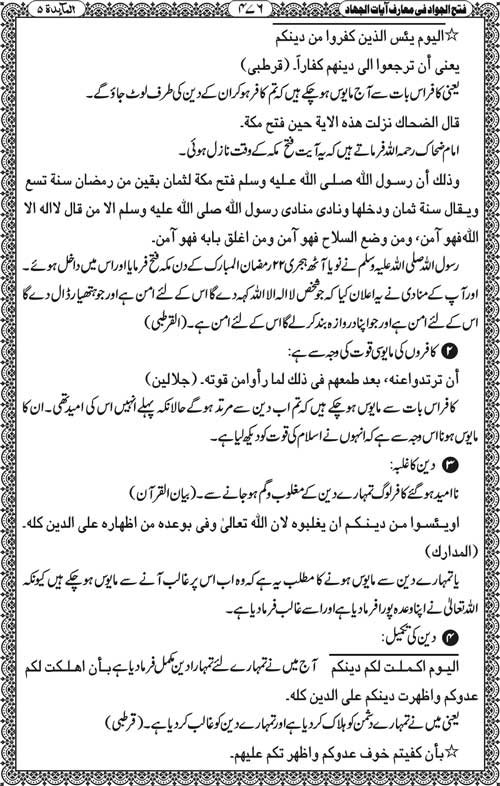 فتح الجواد فی معارف آیات الجهاد ۴۷۶ المآئدة ۵
☆الیوم یئس الذین کفروا من دینکم
یعنی أن ترجعوا الی دینهم کفاراً۔ (قرطبی)
یعنی کافر اس بات سے آج مایوس ہوچکے ہیں کہ تم کافر ہوکر ان کے دین کی طرف لوٹ جاؤ گے۔
قال الضحاك نزلت هذه الاية حین فتح مکة۔
امام ضحاک رحمہ اللہ فرماتے ہیں کہ یہ آیت فتح مکہ کے وقت نازل ہوئی۔
وذلك أن رسول الله صلی الله علیه وسلم فتح مکة لثمان بقین من رمضان سنة تسع
ویقال سنة ثمان ودخلها ونادی منادی رسول الله صلی الله علیه وسلم الا من قال لااله الا
الله فهو آمن، ومن وضع السلاح فهو آمن ومن اغلق بابه فهو آمن۔
رسول اللہ صلی اللہ علیہ وسلم نے نو یا آٹھ ہجری ۲۲ رمضان المبارک کے دن مکہ فتح فرمایا اور اس میں داخل ہوئے۔
اور آپ کے منادی نے یہ اعلان کیا کہ جو شخص لا الہ الا اللہ کہہ دے گا اس کے لئے امن ہے اور جو ہتھیار ڈال دے گا
اس کے لئے امن ہے اور جو اپنا دروازہ بند کرلے گا اس کے لئے امن ہے۔ (القرطبی)
❷ کافروں کی مایوسی قوت کی وجہ سے ہے:
أن ترتدواعنه، بعد طمعهم فی ذلك لما رأوامن قوته۔ (جلالین)
کافر اس بات سے مایوس ہوچکے ہیں کہ تم اب دین سے مرتد ہوگے حالانکہ پہلے انہیں اس کی امید تھی۔ ان کا
مایوس ہونا اس وجہ سے ہے کہ انہوں نے اسلام کی قوت کو دیکھ لیا ہے۔
❸ دین کا غلبہ:
ناامید ہوگئے کافر لوگ تمہارے دین کے مغلوب و گم ہوجانے سے۔ (بیان القرآن)
اویئسوا من دینکم ان یغلبوه لان الله تعالیٰ وفی بوعده من اظهاره علی الدین کله۔
(المدارك)
یا تمہارے دین سے مایوس ہونے کا مطلب یہ ہے کہ وہ اب اس پر غالب آنے سے مایوس ہوچکے ہیں کیونکہ
اللہ تعالیٰ نے اپنا وعدہ پورا فرمادیا ہے اور اسے غالب فرمادیا ہے۔
❹ دین کی تکمیل:
الیوم اکملت لکم دینکم آج میں نے تمہارے لئے تمہارا دین مکمل فرمادیا ہے بأن اهلکت لکم
عدوکم واظهرت دینکم علی الدین کله۔
یعنی میں نے تمہارے دشمن کو ہلاک کردیا ہے اور تمہارے دین کو غالب کردیا ہے۔ (قرطبی)
☆بأن کفیتم خوف عدوکم واظهر تکم علیهم۔